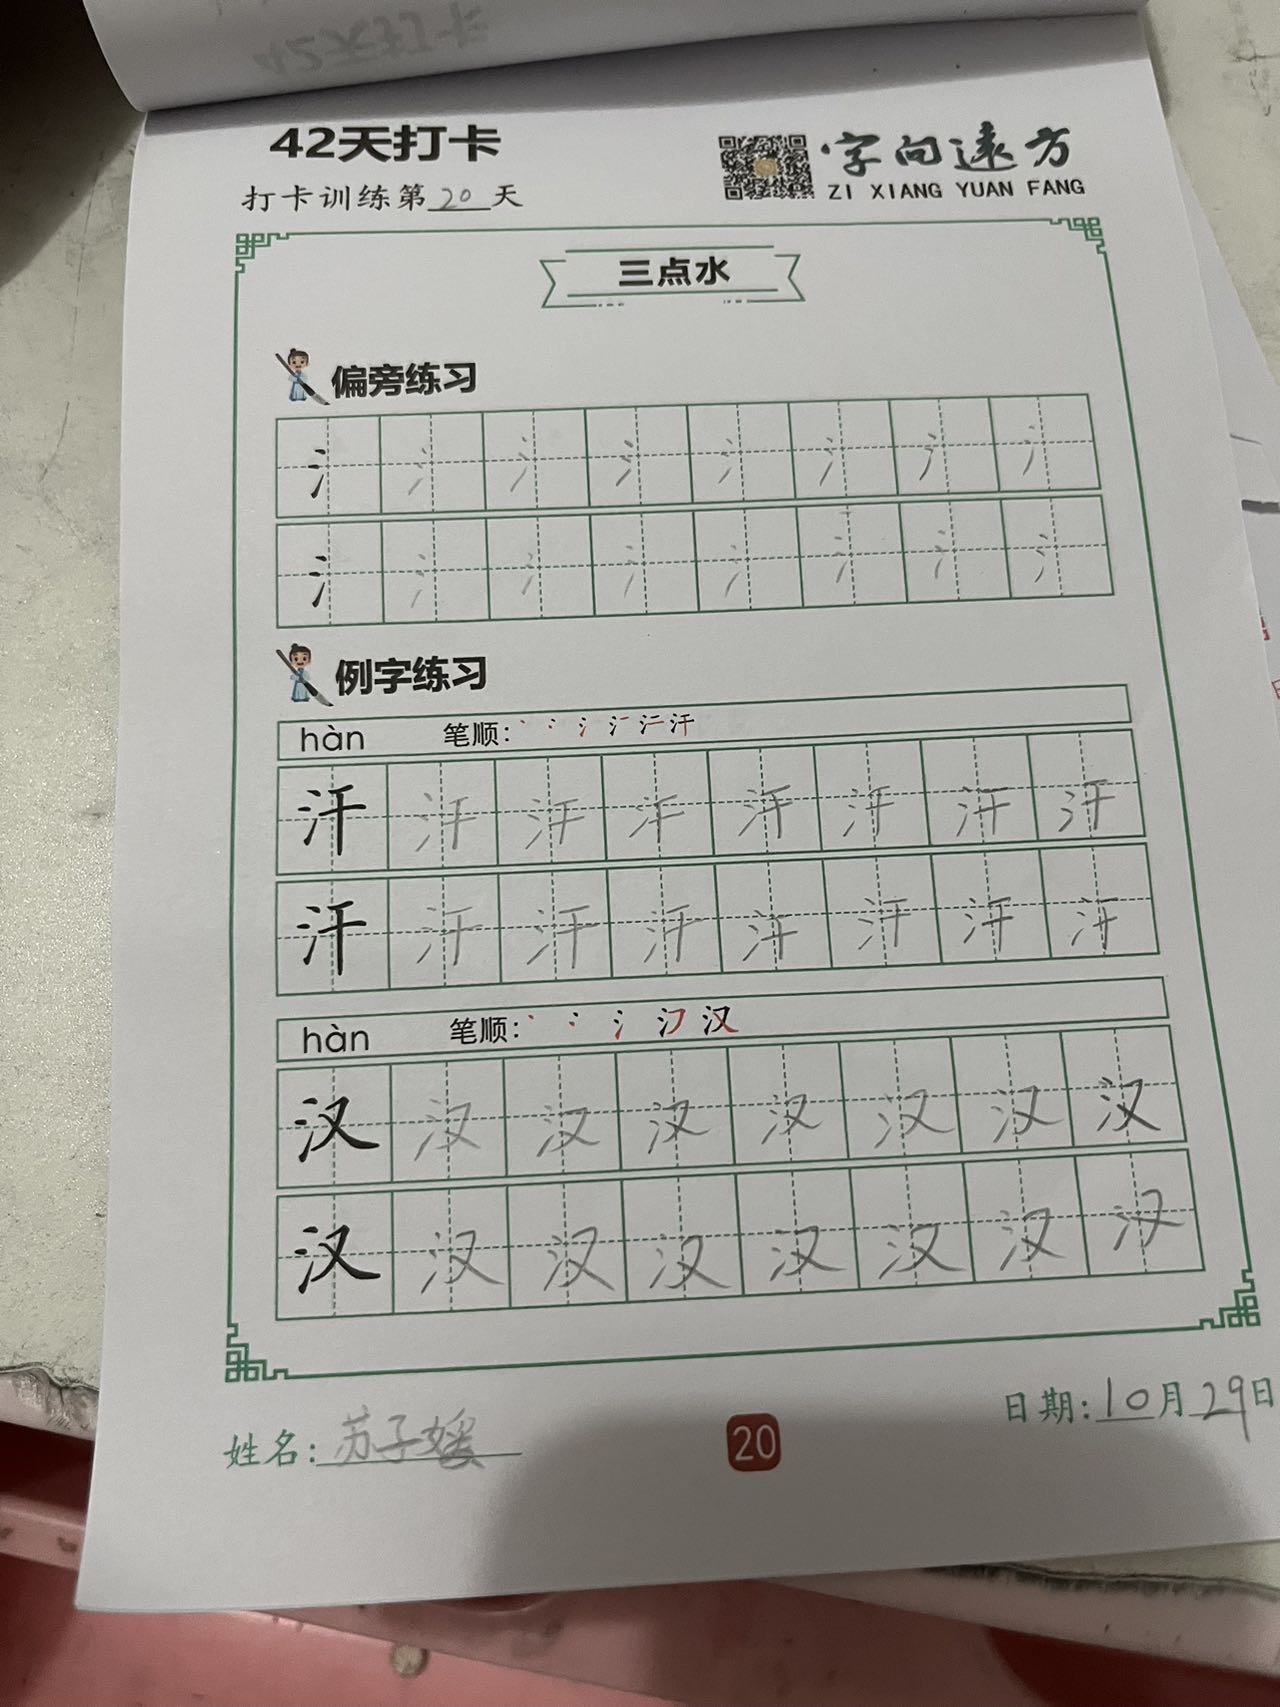 42天打卡
42天打卡
字向遠方
ZI XIANG YUAN FANG
打卡训练第20天
三点水
偏旁练习
氵氵氵氵氵氵氵氵
氵氵氵氵氵氵氵氵
例字练习
hàn 笔顺: 丶 冫 氵 汗
汗汗汗汗汗汗汗汗
汗汗汗汗汗汗汗汗
hàn 笔顺: 丶 冫 氵 汉
汉汉汉汉汉汉汉汉
汉汉汉汉汉汉汉汉
日期:10月29日
姓名:苏子媛
20